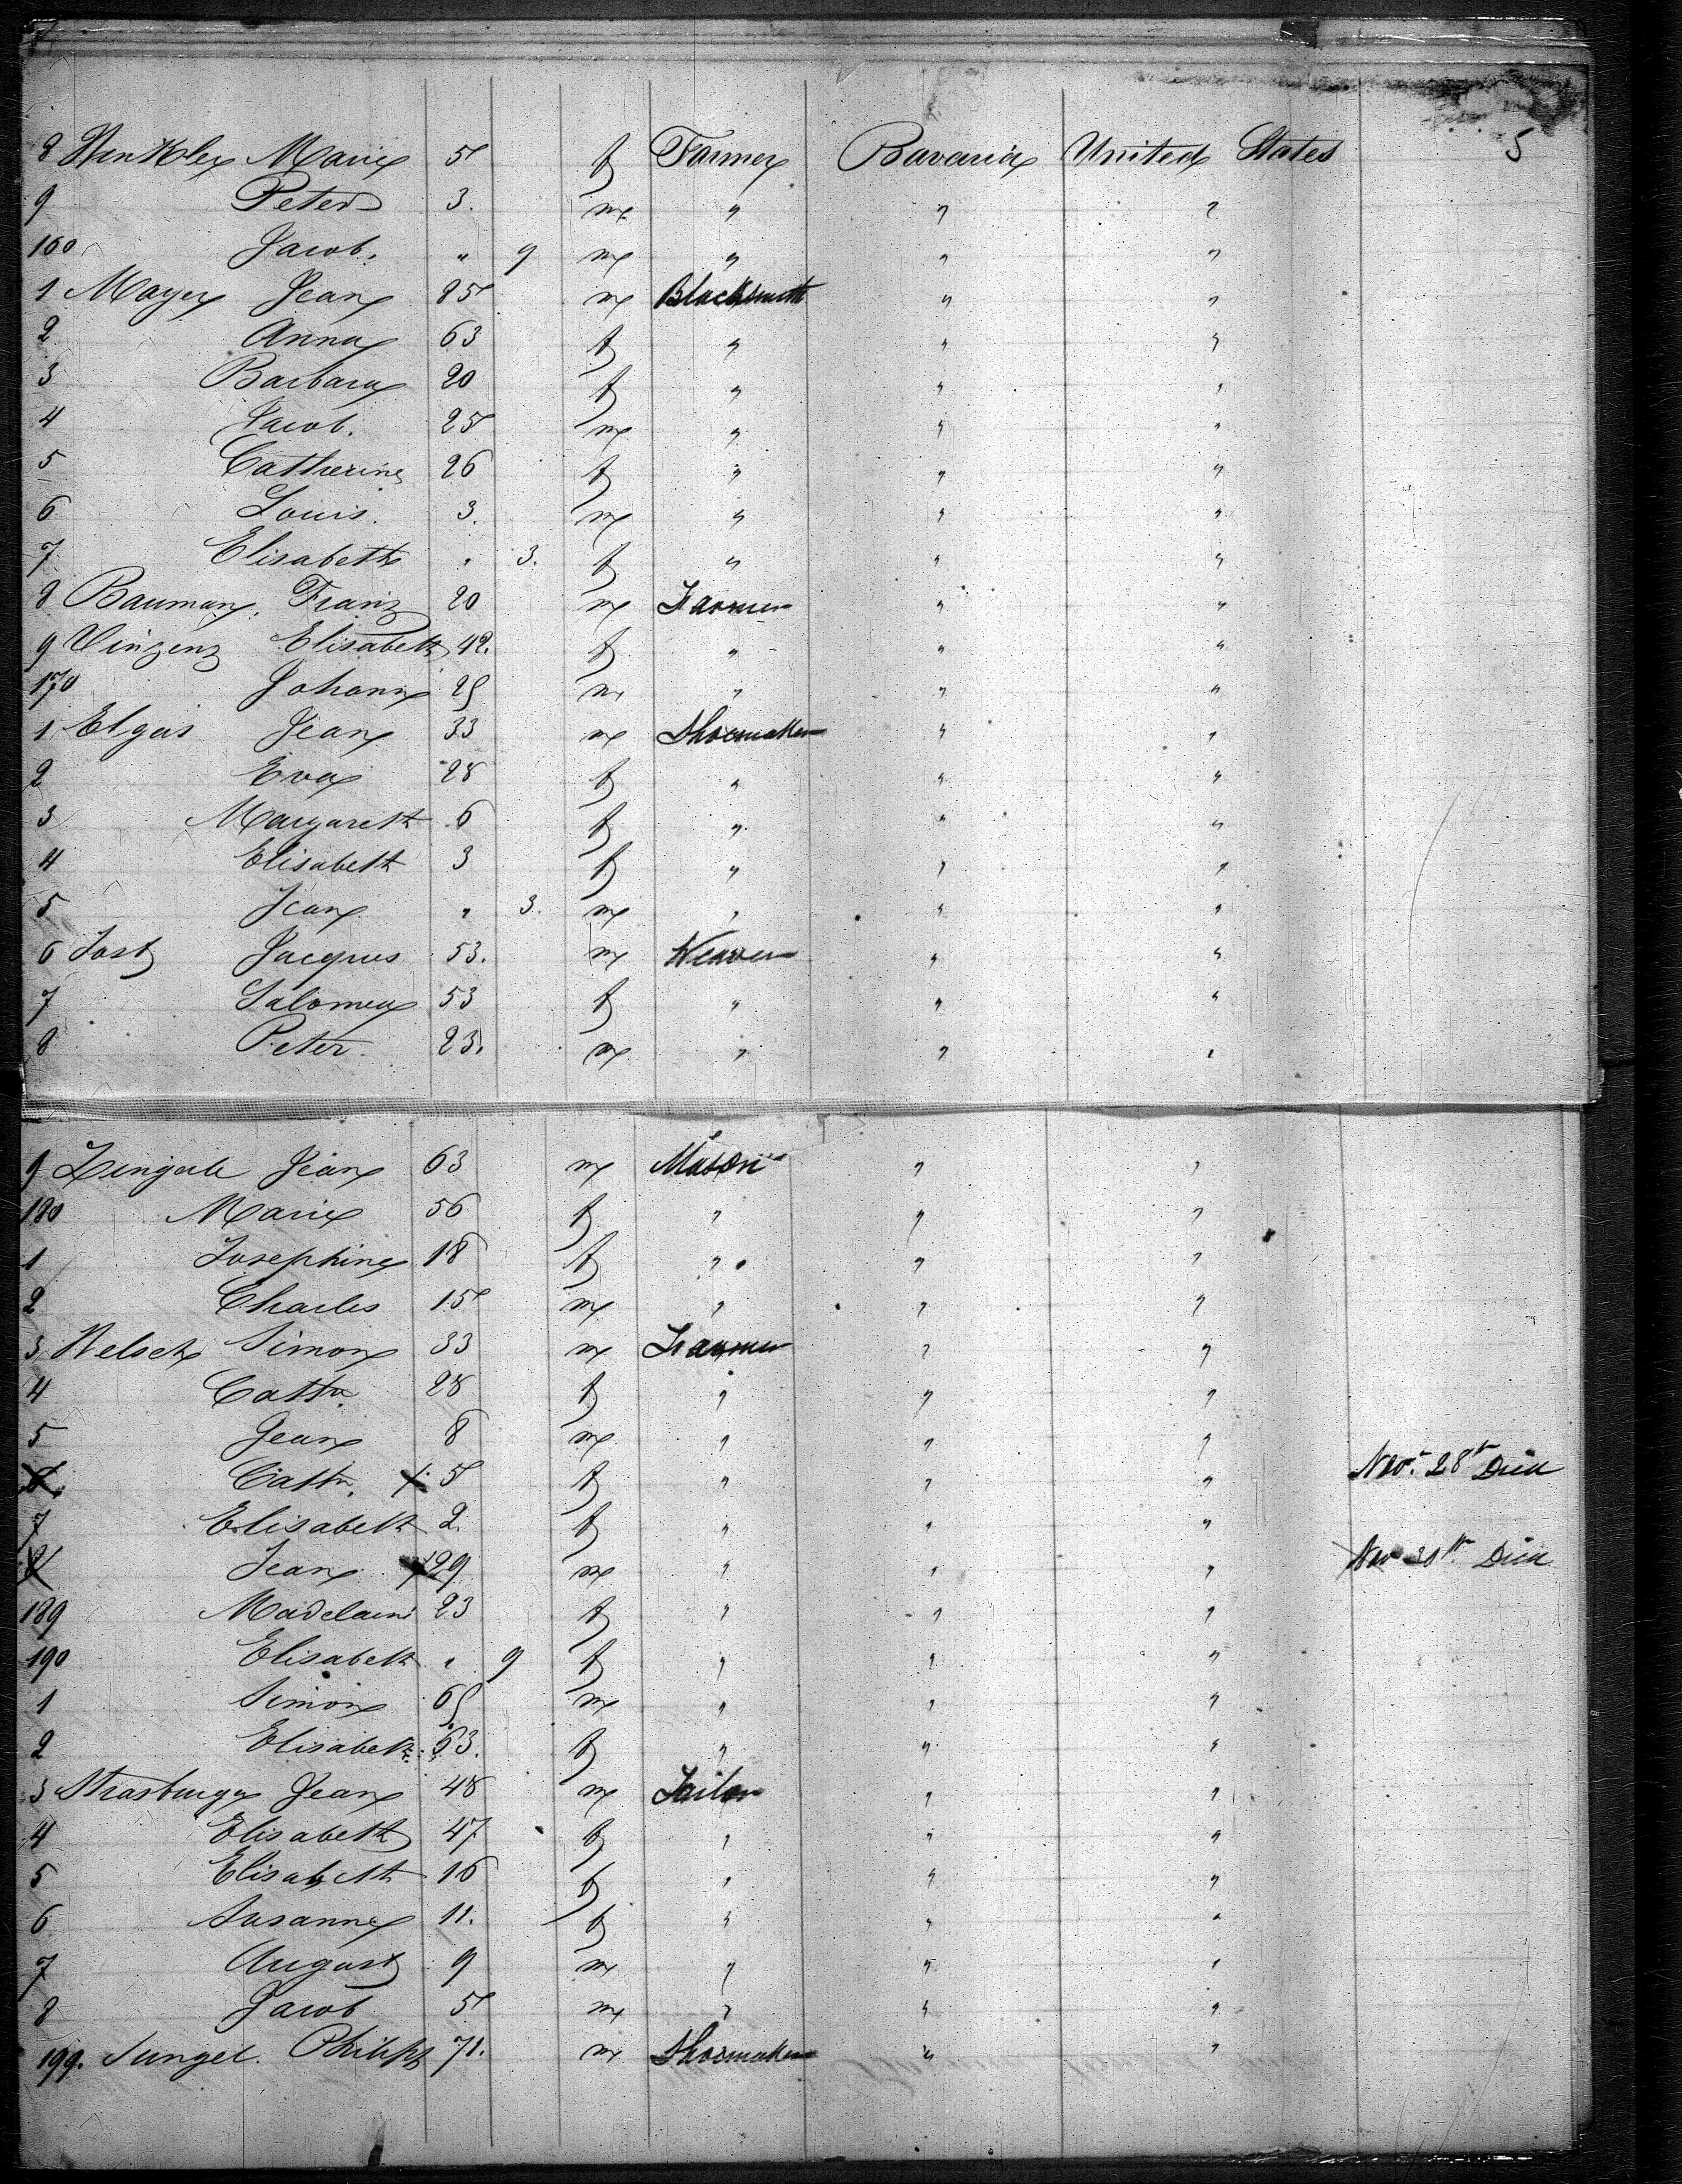 5
8 Winkler Marie 5 f Farmer Bavaria United States
9 Peter 3. m " " "
160 Jacob. " 9 m " " "
1 Mayer Jean 25 m Blacksmith " "
2 Anna 63 f " " "
3 Barbara 20 f " " "
4 Jacob. 25 m " " "
5 Catherine 26 f " " "
6 Louis. 3. m " " "
7 Elisabeth " 3. f " " "
8 Bauman. Franz 20 m Farmer " "
9 Vinzenz Elisabeth 42. f " " "
170 Johann 25 m " " "
1 Elgas Jean 33 m Shoemaker " "
2 Eva 28 f " " "
3 Margareth 6 f " " "
4 Elisabeth 3 f " " "
5 Jean " 3. m " " "
6 Jost Jacques 53. m Weaver " "
7 Salomea 53 f " " "
8 Peter. 23. m " " "
9 Jean 63 m Mason " "
180 Marie 56 f " " "
1 Josephine 18 f " " "
2 Charles 15 m " " "
3 Welsch Simon 33 m Farmer " "
4 Cath. 28 f " " "
5 Jean 8 m " " "
6 Cath. x 5 f " " " Nov. 28th Died
7 Elisabeth 2. f " " "
8 Jean x 29 m " " " Nov 30th Died
189 Madelaine 23 f " " "
190 Elisabeth " 9 f " " "
1 Simon 65 m " " "
2 Elisabeth. 63. f " " "
3 Strasburger Jean 48 m Tailor " "
4 Elisabeth 47 f " " "
5 Elisabeth 16 f " " "
6 Susanne 11. f " " "
7 August 9 m " " "
8 Jacob 5 m " " "
199. Philipp 71. m Shoemaker " "